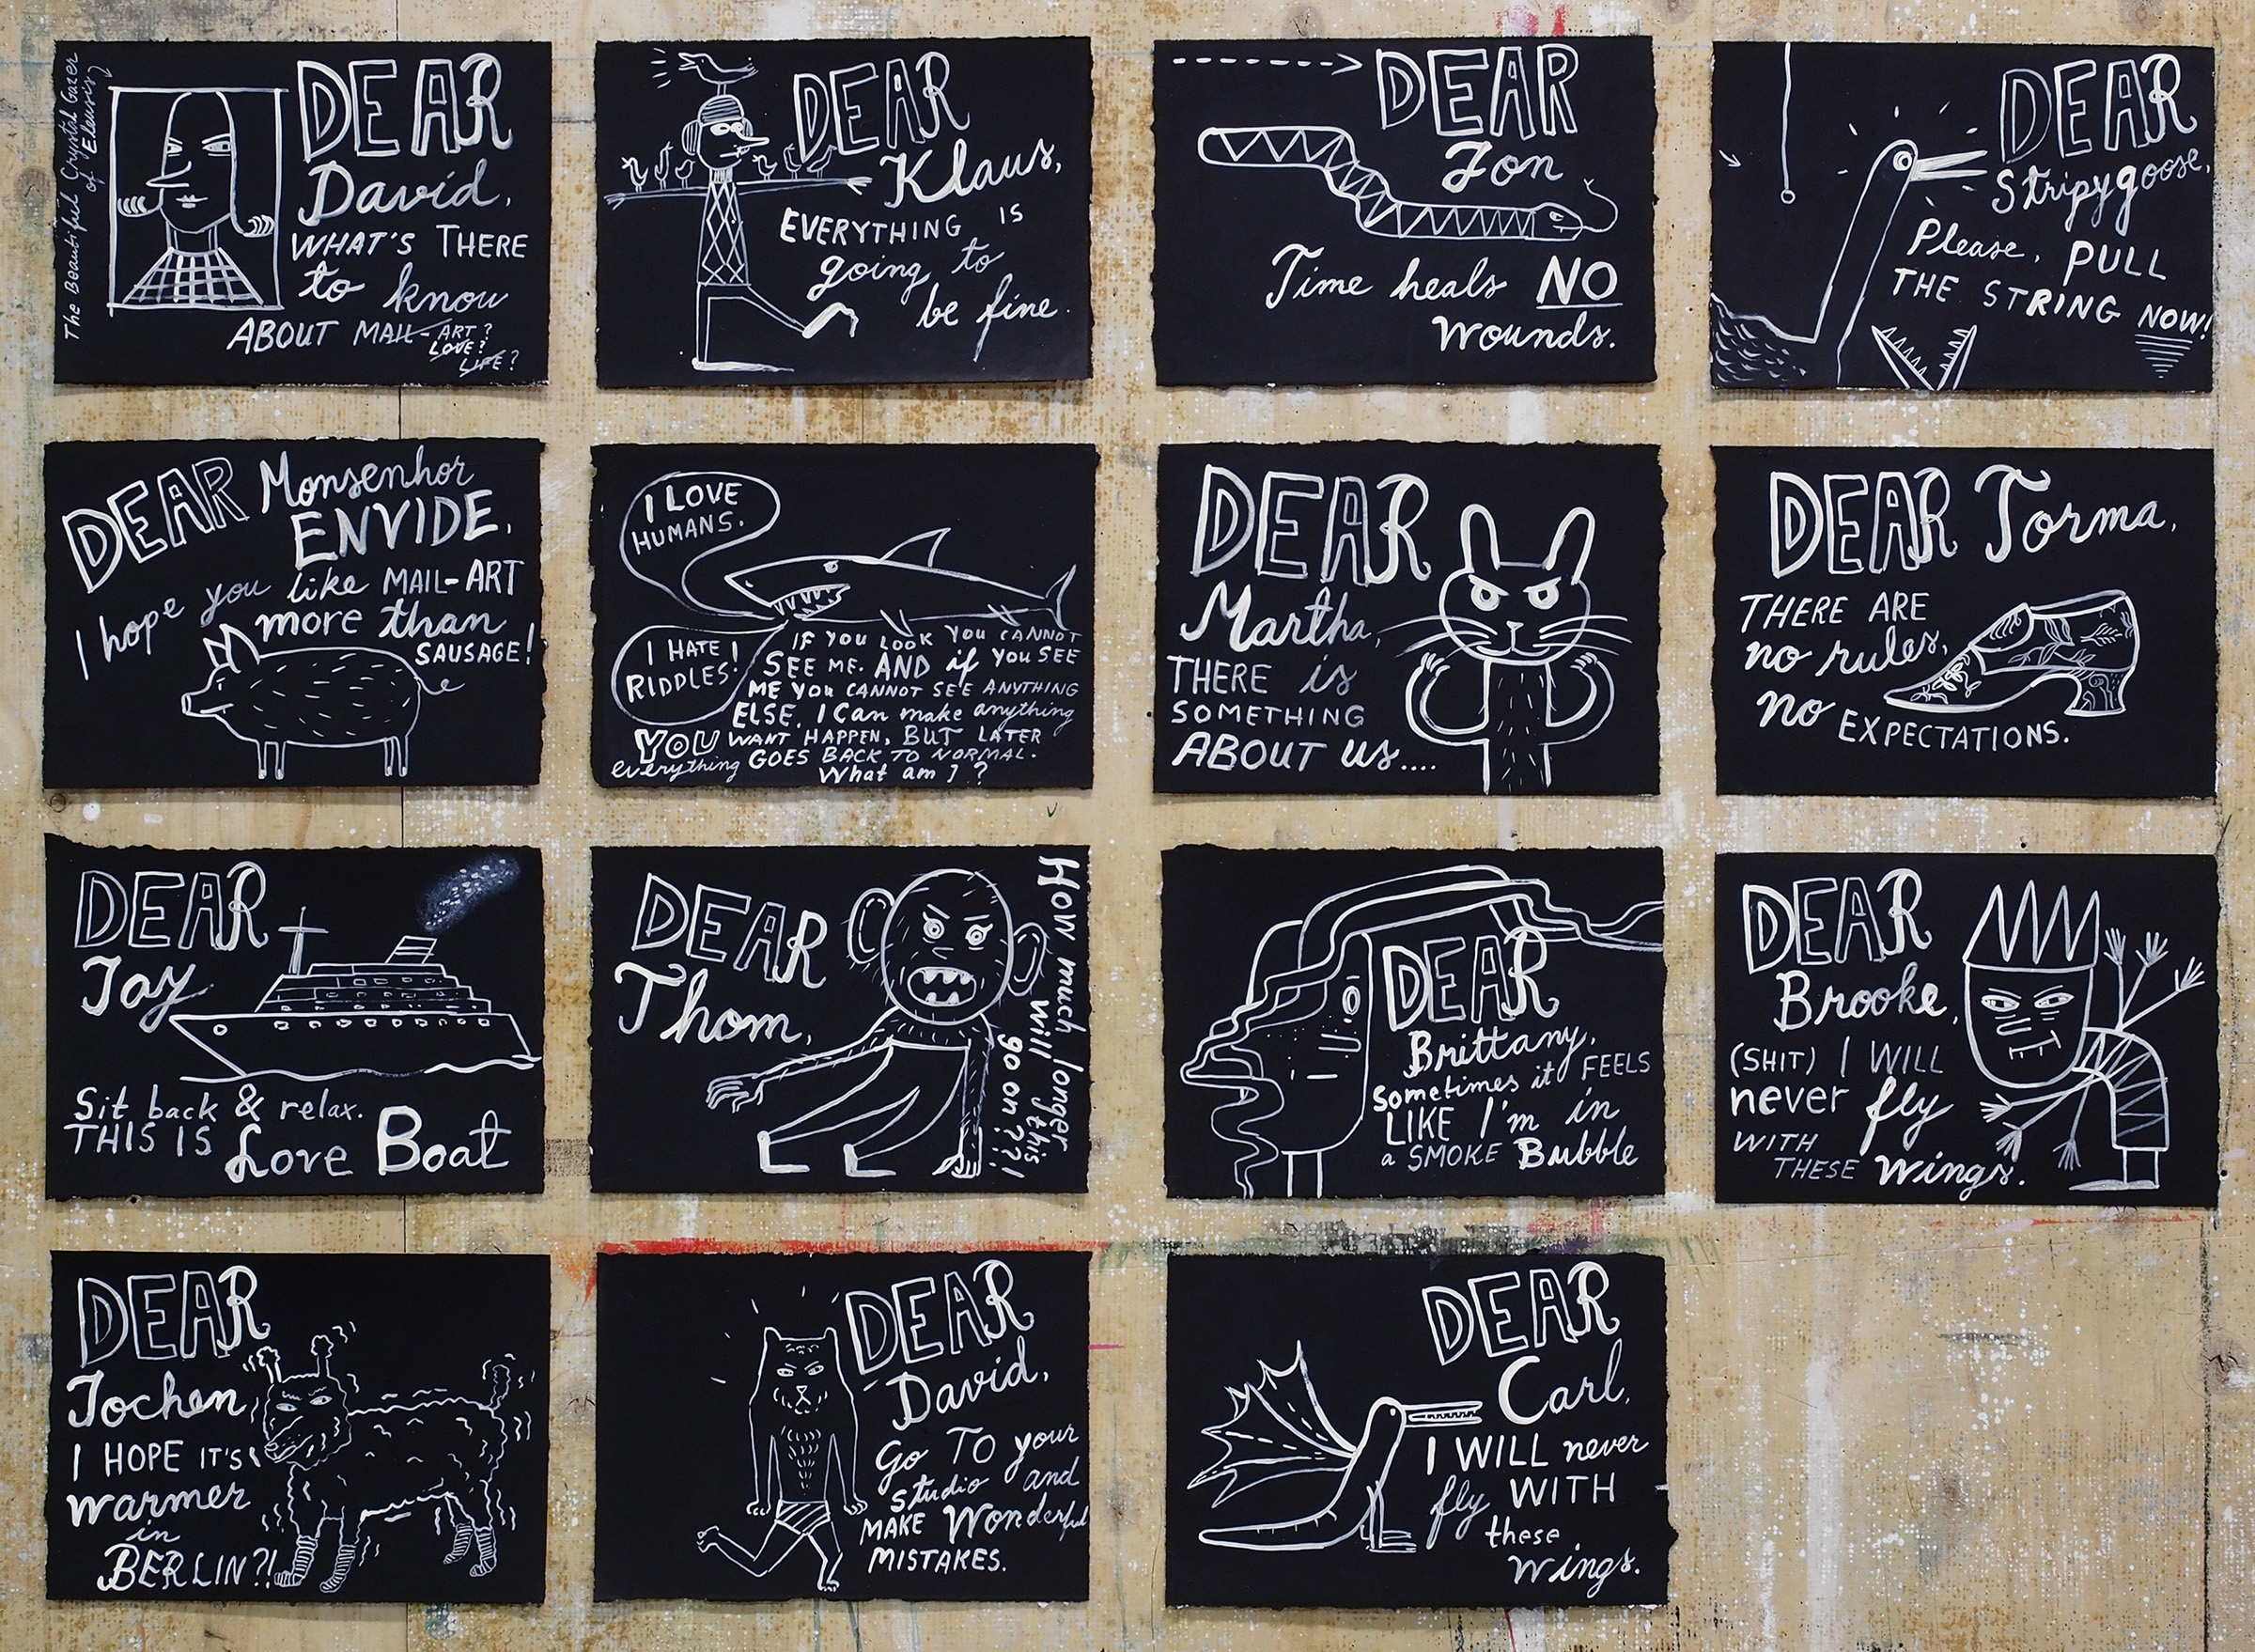 The Beautiful Crystal Gazer
of Eleusis
DEAR
David,
WHAT'S THERE
to know
ABOUT MAIL-ART?
LOVE?
LIFE?
DEAR
Klaus,
EVERYTHING IS
going to
be fine.
DEAR
Jon
Time heals NO
wounds.
DEAR
Stripygoose,
Please, PULL
THE STRING NOW!
DEAR Monsenhor
ENVIDE,
I hope you like MAIL-ART
more than
SAUSAGE!
I LOVE
HUMANS.
I HATE
RIDDLES!
IF YOU LOOK YOU CANNOT
SEE ME. AND if YOU SEE
ME YOU CANNOT SEE ANYTHING
ELSE. I Can make anything
YOU WANT HAPPEN, BUT LATER
everything GOES BACK TO NORMAL.
What am I ?
DEAR
Martha,
THERE is
SOMETHING
ABOUT us....
DEAR Torma,
THERE ARE
no rules,
no EXPECTATIONS.
DEAR
Jay
Sit back & relax.
THIS IS Love Boat
DEAR
Thom,
HOW much longer
will this
go on??!
DEAR
Brittany,
Sometimes it FEELS
LIKE I'm in
a SMOKE Bubble
DEAR
Brooke,
(SHIT) I WILL
never fly
WITH
THESE wings.
DEAR
Jochen
I HOPE IT'S
warmer
in
BERLIN?!
DEAR
David,
Go TO your
studio and
MAKE Wonderful
MISTAKES.
DEAR
Carl,
I WILL never
fly WITH
these
wings.